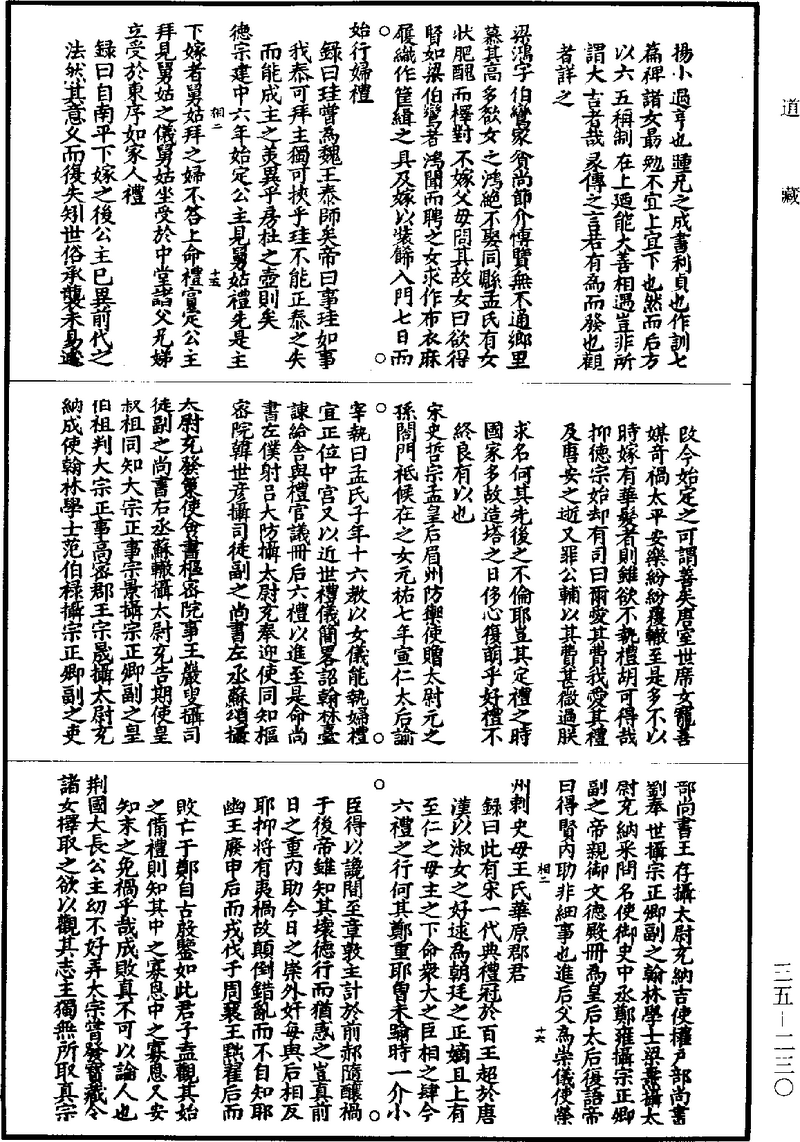 道藏
楊小過亨也睡兄之成書利貞也作訓七
篇稗諸女最勉不宜上宜下也然而后方
以六五稱制在上廼能大善相遇豈非所
謂大吉者哉彖傳之言若有為而發也觀
者詳之
梁鴻字伯鸞家貧尚節介博覽無不通鄉里
慕其高多欲女之鴻絕不娶同縣孟氏有女
狀肥醜而擇對不嫁父母問其故女曰欲得
賢如梁伯鸞者鴻聞而聘之女求作布衣麻
履織作筐緝之具及嫁以裝飾入門七日而
始行婦禮
錄曰珪嘗為魏王泰師矣帝曰事珪如事
我泰可拜主獨可挾乎珪不能正泰之失
而能成主之美異乎房杜之壺則矣
德宗建中六年始定公主見舅姑禮先是主
相二
十五
下嫁者舅姑拜之婦不答上命禮官定公主
拜見舅姑之儀舅姑坐受於中堂諸父兄娣
立受於東序如家人禮
錄曰自南平下嫁之後公主已異前代之
法然其意久而復失矧世俗承襲未易遽
改今始定之可謂善矣唐室世席女寵善
媒奇禍太平安樂紛紛覆轍至是多不以
時嫁有華髮者則雖欲不執禮胡可得哉
抑德宗始却有司曰爾愛其費我愛其禮
及唐安之逝又罪公輔以其費甚微過朕
求名何其先後之不倫耶豈其定禮之時
國家多故造塔之日侈心復萌乎好禮不
終良有以也
宋史哲宗孟皇后眉州防禦使贈太尉元之
孫閤門祇候在之女元祐七年宣仁太后諭
宰執曰孟氏子年十六教以女儀能執婦禮
宜正位中宮又以近世禮儀簡畧詔翰林臺
諫給舍與禮官議冊后六禮以進至是命尚
書左僕射呂大防攝太尉充奉迎使同知樞
密院韓世彥攝司徒副之尚書左丞蘇頌攝
太尉充發策使僉書樞密院事王巖叟攝司
徒副之尚書右丞蘇轍攝太尉充告期使皇
叔祖同知大宗正事宗景攝宗正卿副之皇
伯祖判大宗正事高密郡王宗晟攝太尉充
納成使翰林學士范伯祿攝宗正卿副之吏
部尚書王存攝太尉充納吉使權戶部尚書
劉奉世攝宗正卿副之翰林學士梁燾攝太
尉充納采問名使御史中丞鄭雍攝宗正卿
副之帝親御文德殿冊為皇后太后復語帝
曰得賢內助非細事也進后父為崇儀使榮
相二
十六
州刺史母王氏華原郡君
錄曰此有宋一代典禮冠於百王超於唐
漢以淑女之好逑為朝廷之正嫡且上有
至仁之母主之下命衆大之巨相之肆今
六禮之行何其鄭重耶曾未踰時一介小
臣得以讒間至章敦主計於前郝隨釀禍
于後帝雖知其壞德行而猶惑之豈真前
日之重內助今日之崇外奸每與后相反
耶抑將有夷禍故顛倒錯亂而不自知耶
幽王廢申后而戎伐于周襄王黜翟后而
敗亡于鄭自古殷鑒如此君子盍觀其始
之備禮則知其中之寡恩中之寡恩又安
知末之免禍乎哉成敗真不可以論人也
荆國大長公主幼不好弄太宗嘗發寶藏令
諸女擇取之欲以觀其志主獨無所取真宗
三五—二三〇